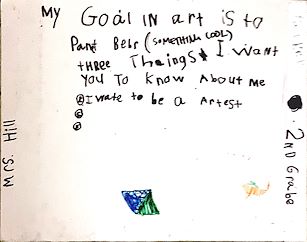 My Goal IN art is to
Pant Betr (SOMETHING COOL)
tHREE Thaings I want
you To know About me
I wate to be a Artest
Mrs. Hill
2ND Grabe